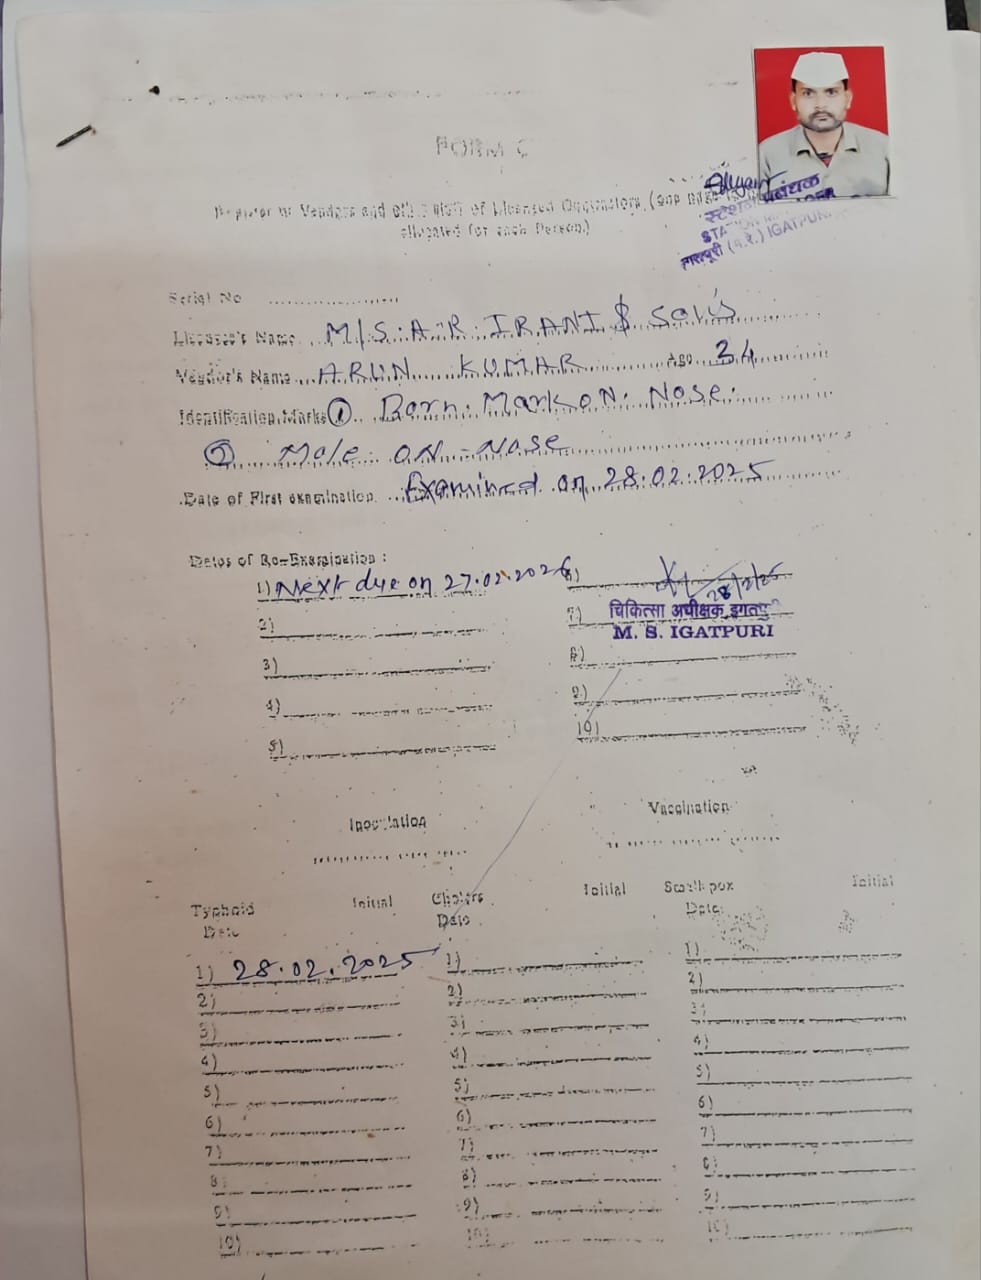 FORM C
Register of Vendors and other staff of Licensed Contractors, (one page
allocated for each Person.)
स्टेशन प्रबंधक
STATION
इगतपुरी (म.रे.) IGATPURI
Serial No ......................
Licensee's Name M/S. A.R. IRANI $ Son's
Vendor's Name ARUN KUMAR Age 34
Identification Marks ① Born Mark on Nose.
② Mole on Nose
Date of First examination Examined on 28.02.2025
Dates of Re-Examination :
1) Next due on 27.02.2026 6)
28/2/25
2) 7)
चिकित्सा अधीक्षक इगतपुरी
M. S. IGATPURI
3) 8)
4) 9)
5) 10)
Inoculation Vaccination
Typhoid Initial Cholera Initial Small pox Initial
Date Date Date
1) 28.02.2025 1) 1)
2) 2) 2)
3) 3) 3)
4) 4) 4)
5) 5) 5)
6) 6) 6)
7) 7) 7)
8) 8) 8)
9) 9) 9)
10) 10) 10)